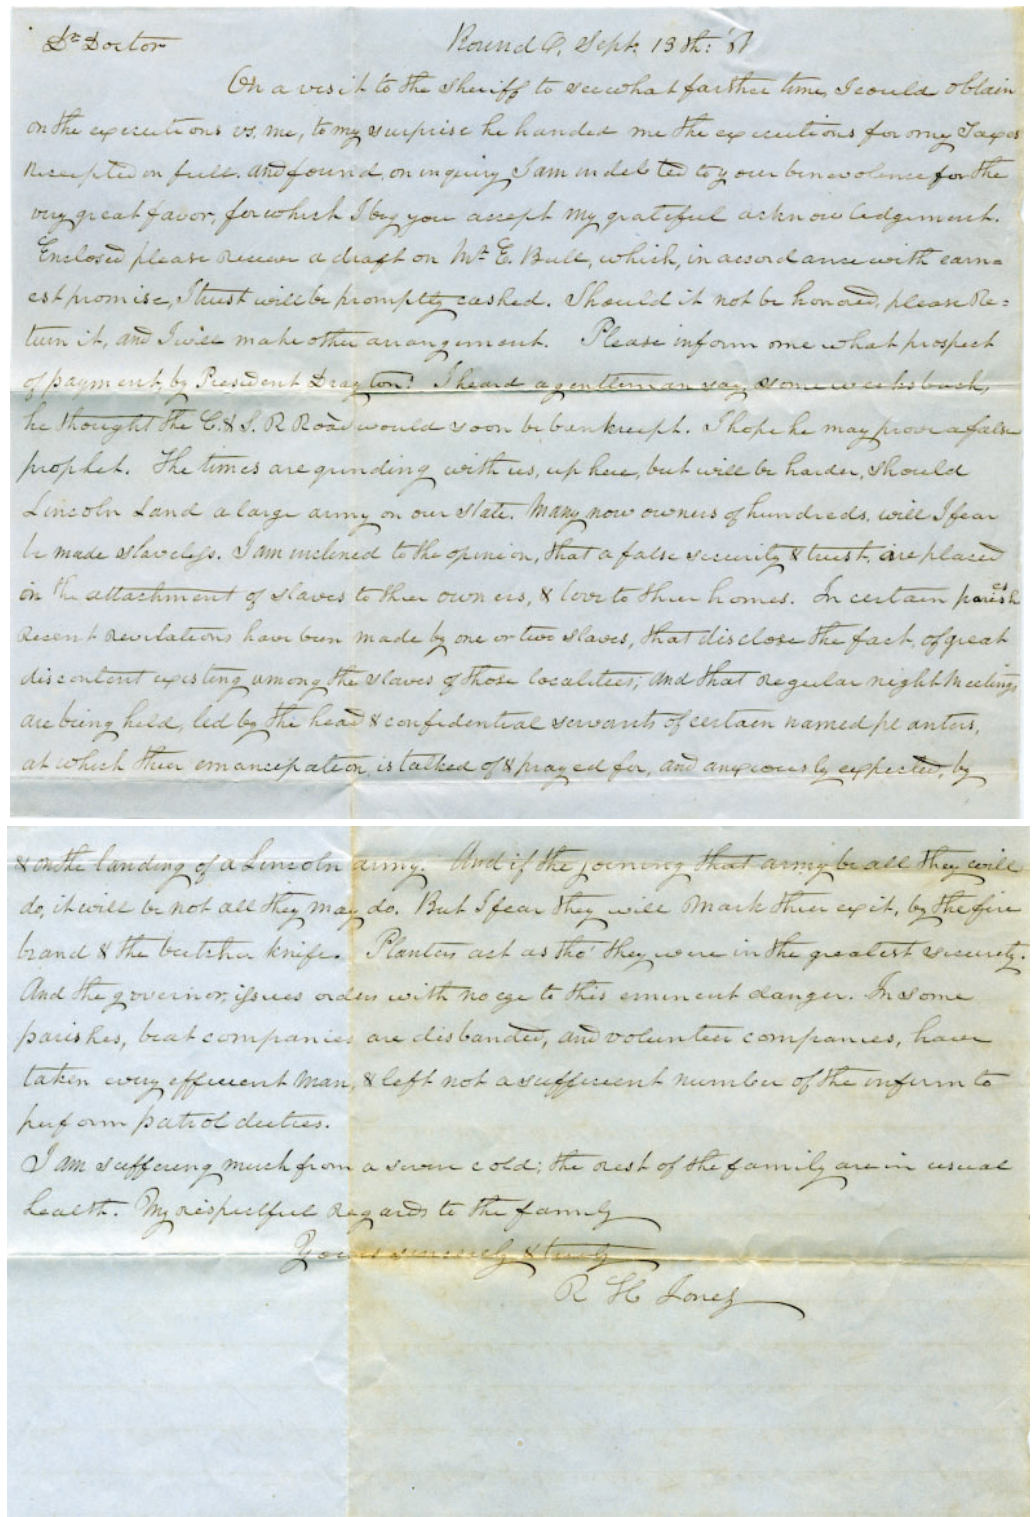 Dr Doctor Round O, Sept. 13th: '61
On a visit to the sheriff to see what farther time, I could obtain
on the executions vs. me, to my surprise he handed me the executions for my Taxes
Receipted in full. And found, on inquiry, I am indebted to your benevolence for the
very great favor, for which I beg you accept my grateful acknowledgement.
Enclosed please receive a draft on Mr. E. Bull, which, in accordance with earn=
est promise, I trust will be promptly cashed. Should it not be honored, please Re=
turn it, and I will make other arrangement. Please inform me what prospect
of payment, by President Drayton? I heard a gentleman say, some weeks back,
he thought the C. & S. R Road would soon be bankrupt. I hope he may prove a false
prophet. The times are grinding with us, up here, but will be harder, should
Lincoln Land a large army on our state. Many now owners of hundreds, will I fear
be made slaveless. I am inclined to the opinion, that a false security & trust, are placed
on the attachment of slaves to their owners, & love to their homes. In certain parishes
Recent revelations have been made by one or two slaves, that disclose the fact, of great
discontent existing among the slaves of those localities; And that regular night meetings
are being held, led by the head & confidential servants of certain named planters,
at which their emancipation, is talked of & prayed for, and anxiously expected, by
& on the landing of a Lincoln army. And if the joining that army be all they will
do, it will be not all they may do. But I fear they will Mark their exit, by the fire
brand & the butcher knife. Planters act as tho' they were in the greatest security.
And the governor, issues orders with no eye to this eminent danger. In some
parishes, beat companies are disbanded, and volunteer companies, have
taken every efficient man, & left not a sufficient number of the infirm to
perform patrol duties.
I am suffering much from a severe cold; the rest of the family are in usual
health. My respectful regards to the family
Yours sincerely & truly
R H Jones